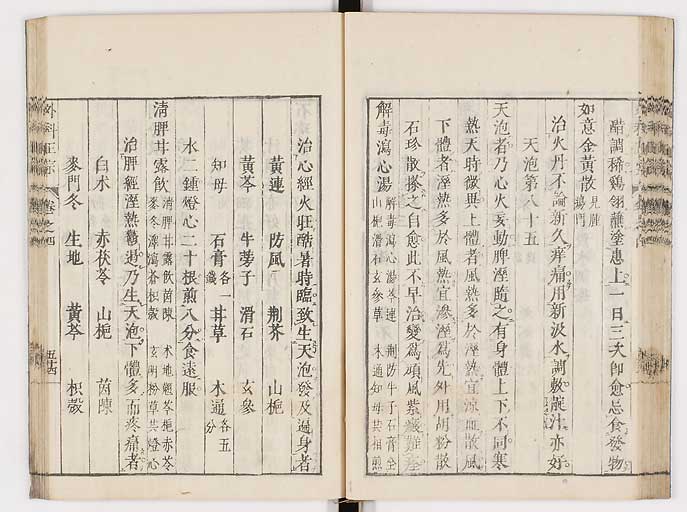 醋調稀鷄翎蘸塗患上一日三次即愈忌食發物
如意金黄散見腫瘍門
治火丹不論新久痒痛用新汲水調敷靛汁亦好
天泡第八十五
天泡者乃心火妄動脾溼隨之有身體上下不同寒
熱天時微異上體者風熱多於溼熱宜涼血散風
下體者溼熱多於風熱宜滲溼爲先外用胡粉散
石珍散摻之自愈此不早治變爲頑風紫癜難痊
解毒瀉心湯解毒瀉心湯芩連荆防牛子石膏全山梔滑石玄參草木通知母共相煎
治心經火旺酷暑時臨致生天泡發及遍身者
黄連 防風 荆芥 山梔
黄芩 牛蒡子 滑石 玄參
知母 石膏各一錢 甘草 木通各五分
水二鍾燈心二十根煎八分食遠服
清脾甘露飲清脾甘露飲茵陳术地翹芩梔赤苓麥冬澤瀉蒼枳殼玄明粉草共燈心
治脾經溼熱鬱遏乃生天泡下體多而疼痛者
白术 赤茯苓 山梔 茵陳
麥門冬 生地 黄芩 枳殼
外科正宗 卷之四 五十四